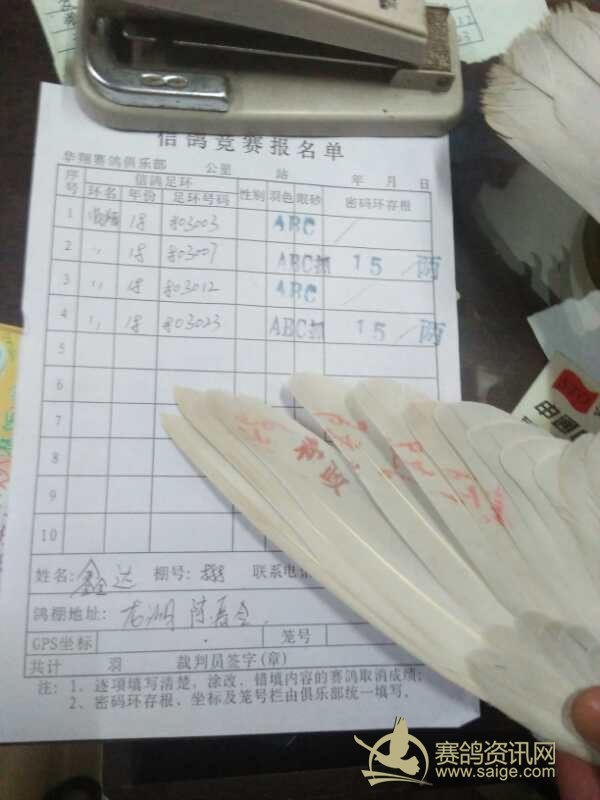 信鸽竞赛报名单
华翔赛鸽俱乐部 公里 站 年 月 日
序号 信鸽足环 性别 羽色 眼砂 密码环存根
环名 年份 足环号码
1 18 803003 ABC /
2 〃 18 803007 ABC抓 15/两
3 〃 18 803012 ABC /
4 〃 18 803023 ABC抓 15/两
5
6
7
8
9
10
姓名: 鑫达 棚号: 联系电话
鸽棚地址:
GPS坐标 笼号
共计 羽 裁判员签字(章)
注: 1、逐项填写清楚, 涂改、错填内容的赛鸽取消成绩;
2、密码环存根、坐标及笼号栏由俱乐部统一填写。
赛鸽资讯网
www.saige.com